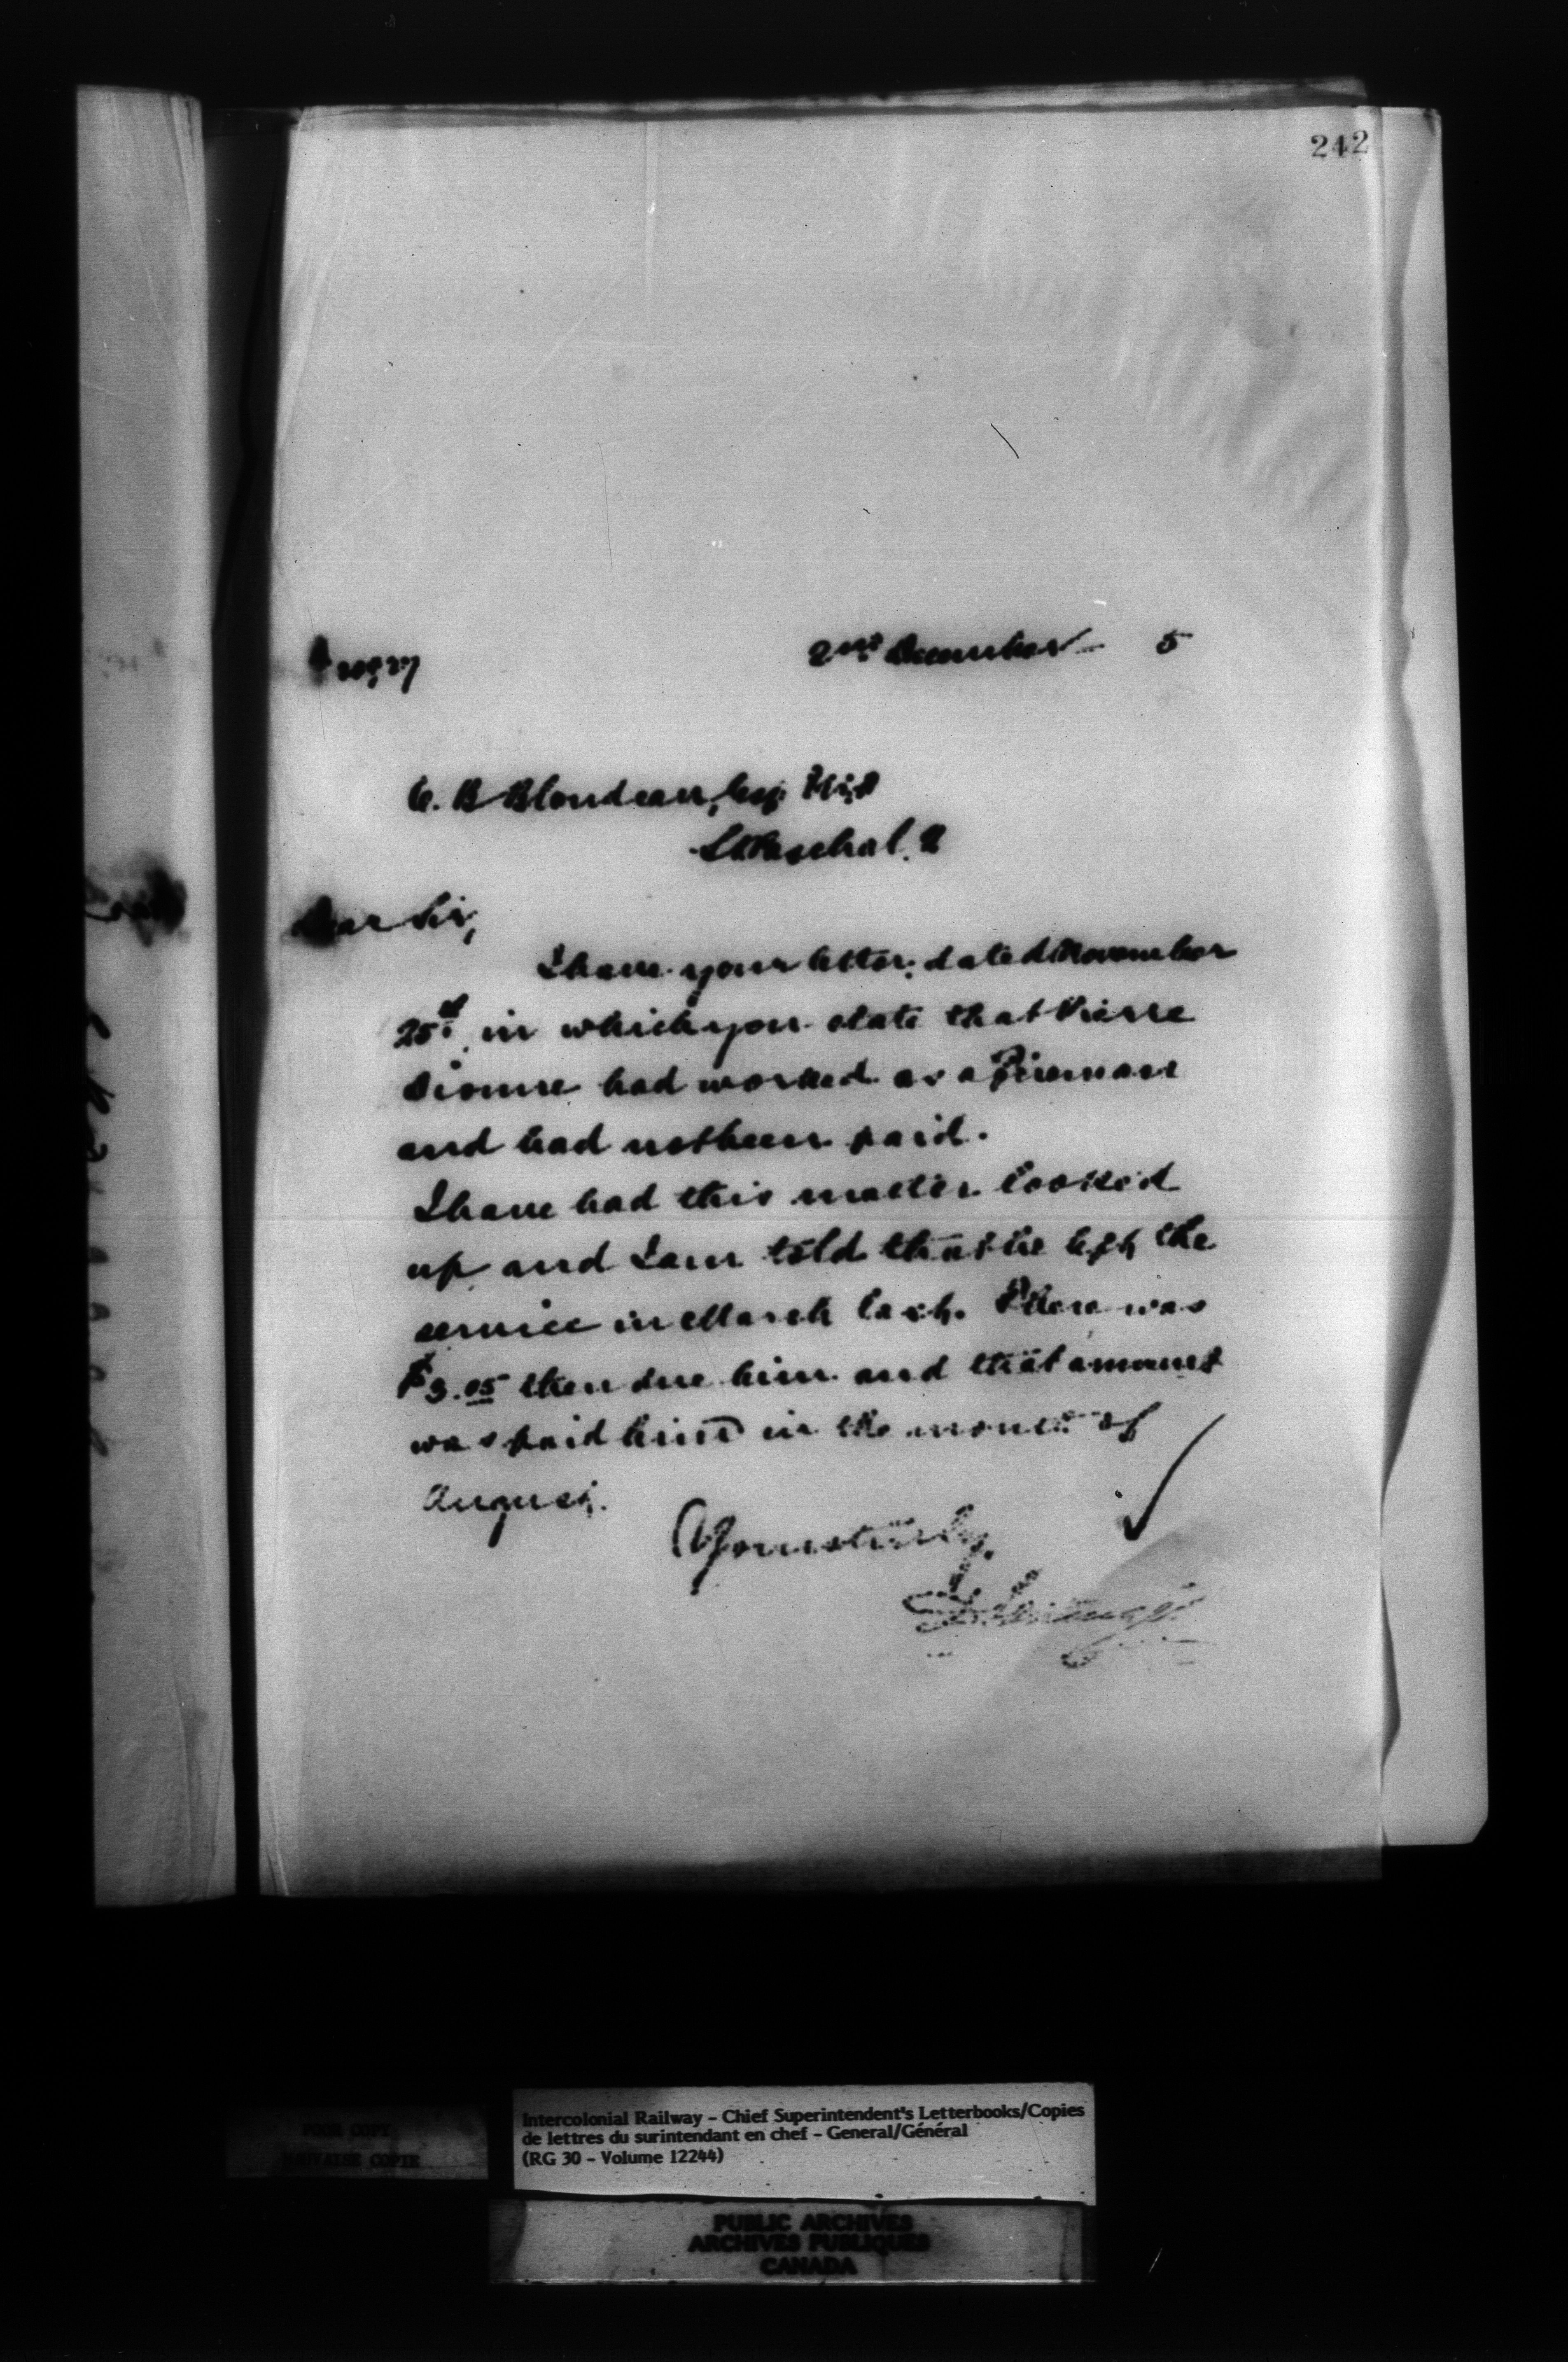 242
2nd December 5
C. B Blondeau, Esq. M.P
St Paschal. Q
Dear Sir,
I have your letter dated November
25th in which you state that Pierre
Dionne had worked as a Fireman
and had not been paid.
I have had this matter looked
up and I am told that he left the
service in March last. There was
$3.05 then due him and that amount
was paid him in the month of
August.
Yours truly,
Intercolonial Railway – Chief Superintendent's Letterbooks/Copies
de lettres du surintendant en chef – General/Général
(RG 30 – Volume 12244)
POOR COPY
MAUVAISE COPIE
PUBLIC ARCHIVES
ARCHIVES PUBLIQUES
CANADA